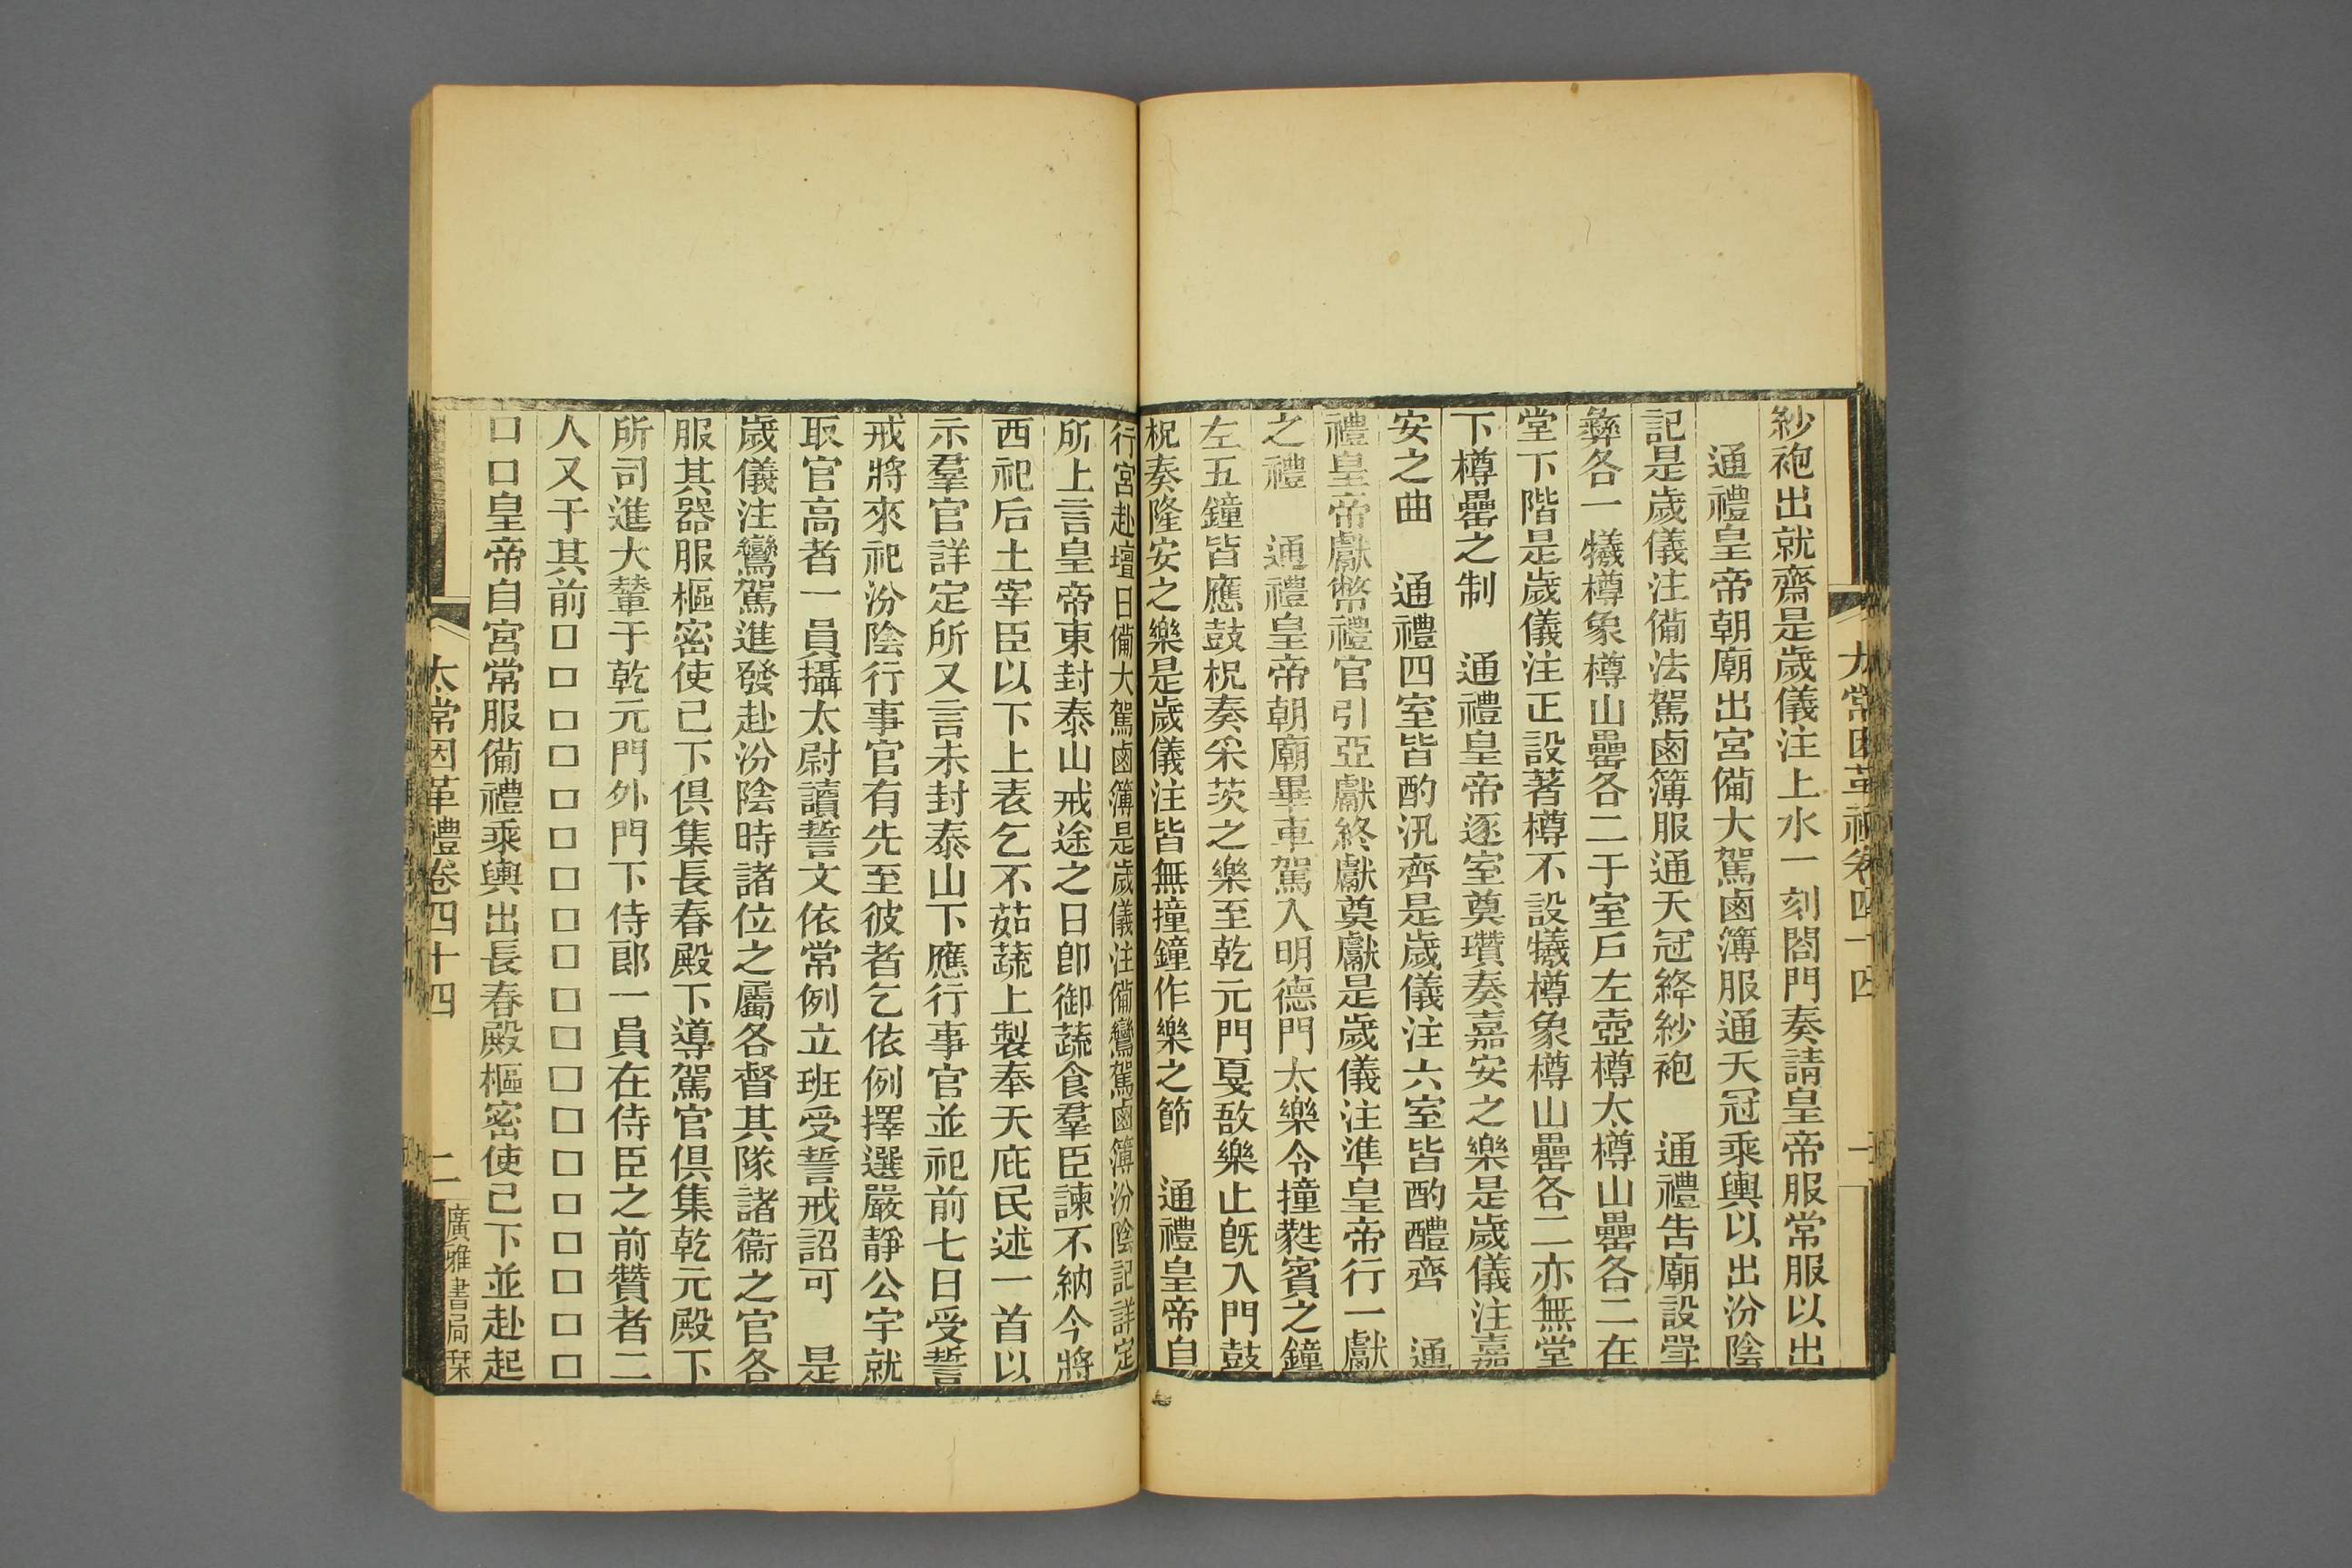 太常因革禮卷四十四
紗袍出就齋是歲儀注上水一刻閤門奏請皇帝服常服以出
通禮皇帝朝廟出宮備大駕鹵簿服通天冠乘輿以出汾陰
記是歲儀注備法駕鹵簿服通天冠絳紗袍　通禮告廟設斝
彝各一犧樽象樽山罍各二于室戶左壺樽太樽山罍各二在
堂下階是歲儀注正設著樽不設犧樽象樽山罍各二亦無堂
下樽罍之制　通禮皇帝逐室奠瓚奏嘉安之樂是歲儀注嘉
安之曲　通禮四室皆酌汎齊是歲儀注六室皆酌醴齊　通
禮皇帝獻幣禮官引亞獻終獻奠獻是歲儀注準皇帝行一獻
之禮　通禮皇帝朝廟畢車駕入明德門太樂令撞蕤賓之鐘
左五鐘皆應鼓柷奏采茨之樂至乾元門戛敔樂止旣入門鼓
柷奏隆安之樂是歲儀注皆無撞鐘作樂之節　通禮皇帝自
行宮赴壇日備大駕鹵簿是歲儀注備鸞駕鹵簿汾陰記詳定
所上言皇帝東封泰山戒途之日卽御蔬食羣臣諫不納今將
西祀后土宰臣以下上表乞不茹蔬上製奉天庇民述一首以
示羣官詳定所又言未封泰山下應行事官並祀前七日受誓
戒將來祀汾陰行事官有先至彼者乞依例擇選嚴靜公宇就
取官高者一員攝太尉讀誓文依常例立班受誓戒詔可　是
歲儀注鸞駕進發赴汾陰時諸位之屬各督其隊諸衞之官各
服其器服樞密使已下俱集長春殿下導駕官俱集乾元殿下
所司進大輦于乾元門外門下侍郎一員在侍臣之前贊者二
人又于其前□□□□□□□□□□□□□□□□□□□
□□皇帝自宮常服備禮乘輿出長春殿樞密使已下並赴起
太常因革禮卷四十四
二
廣雅書局栞